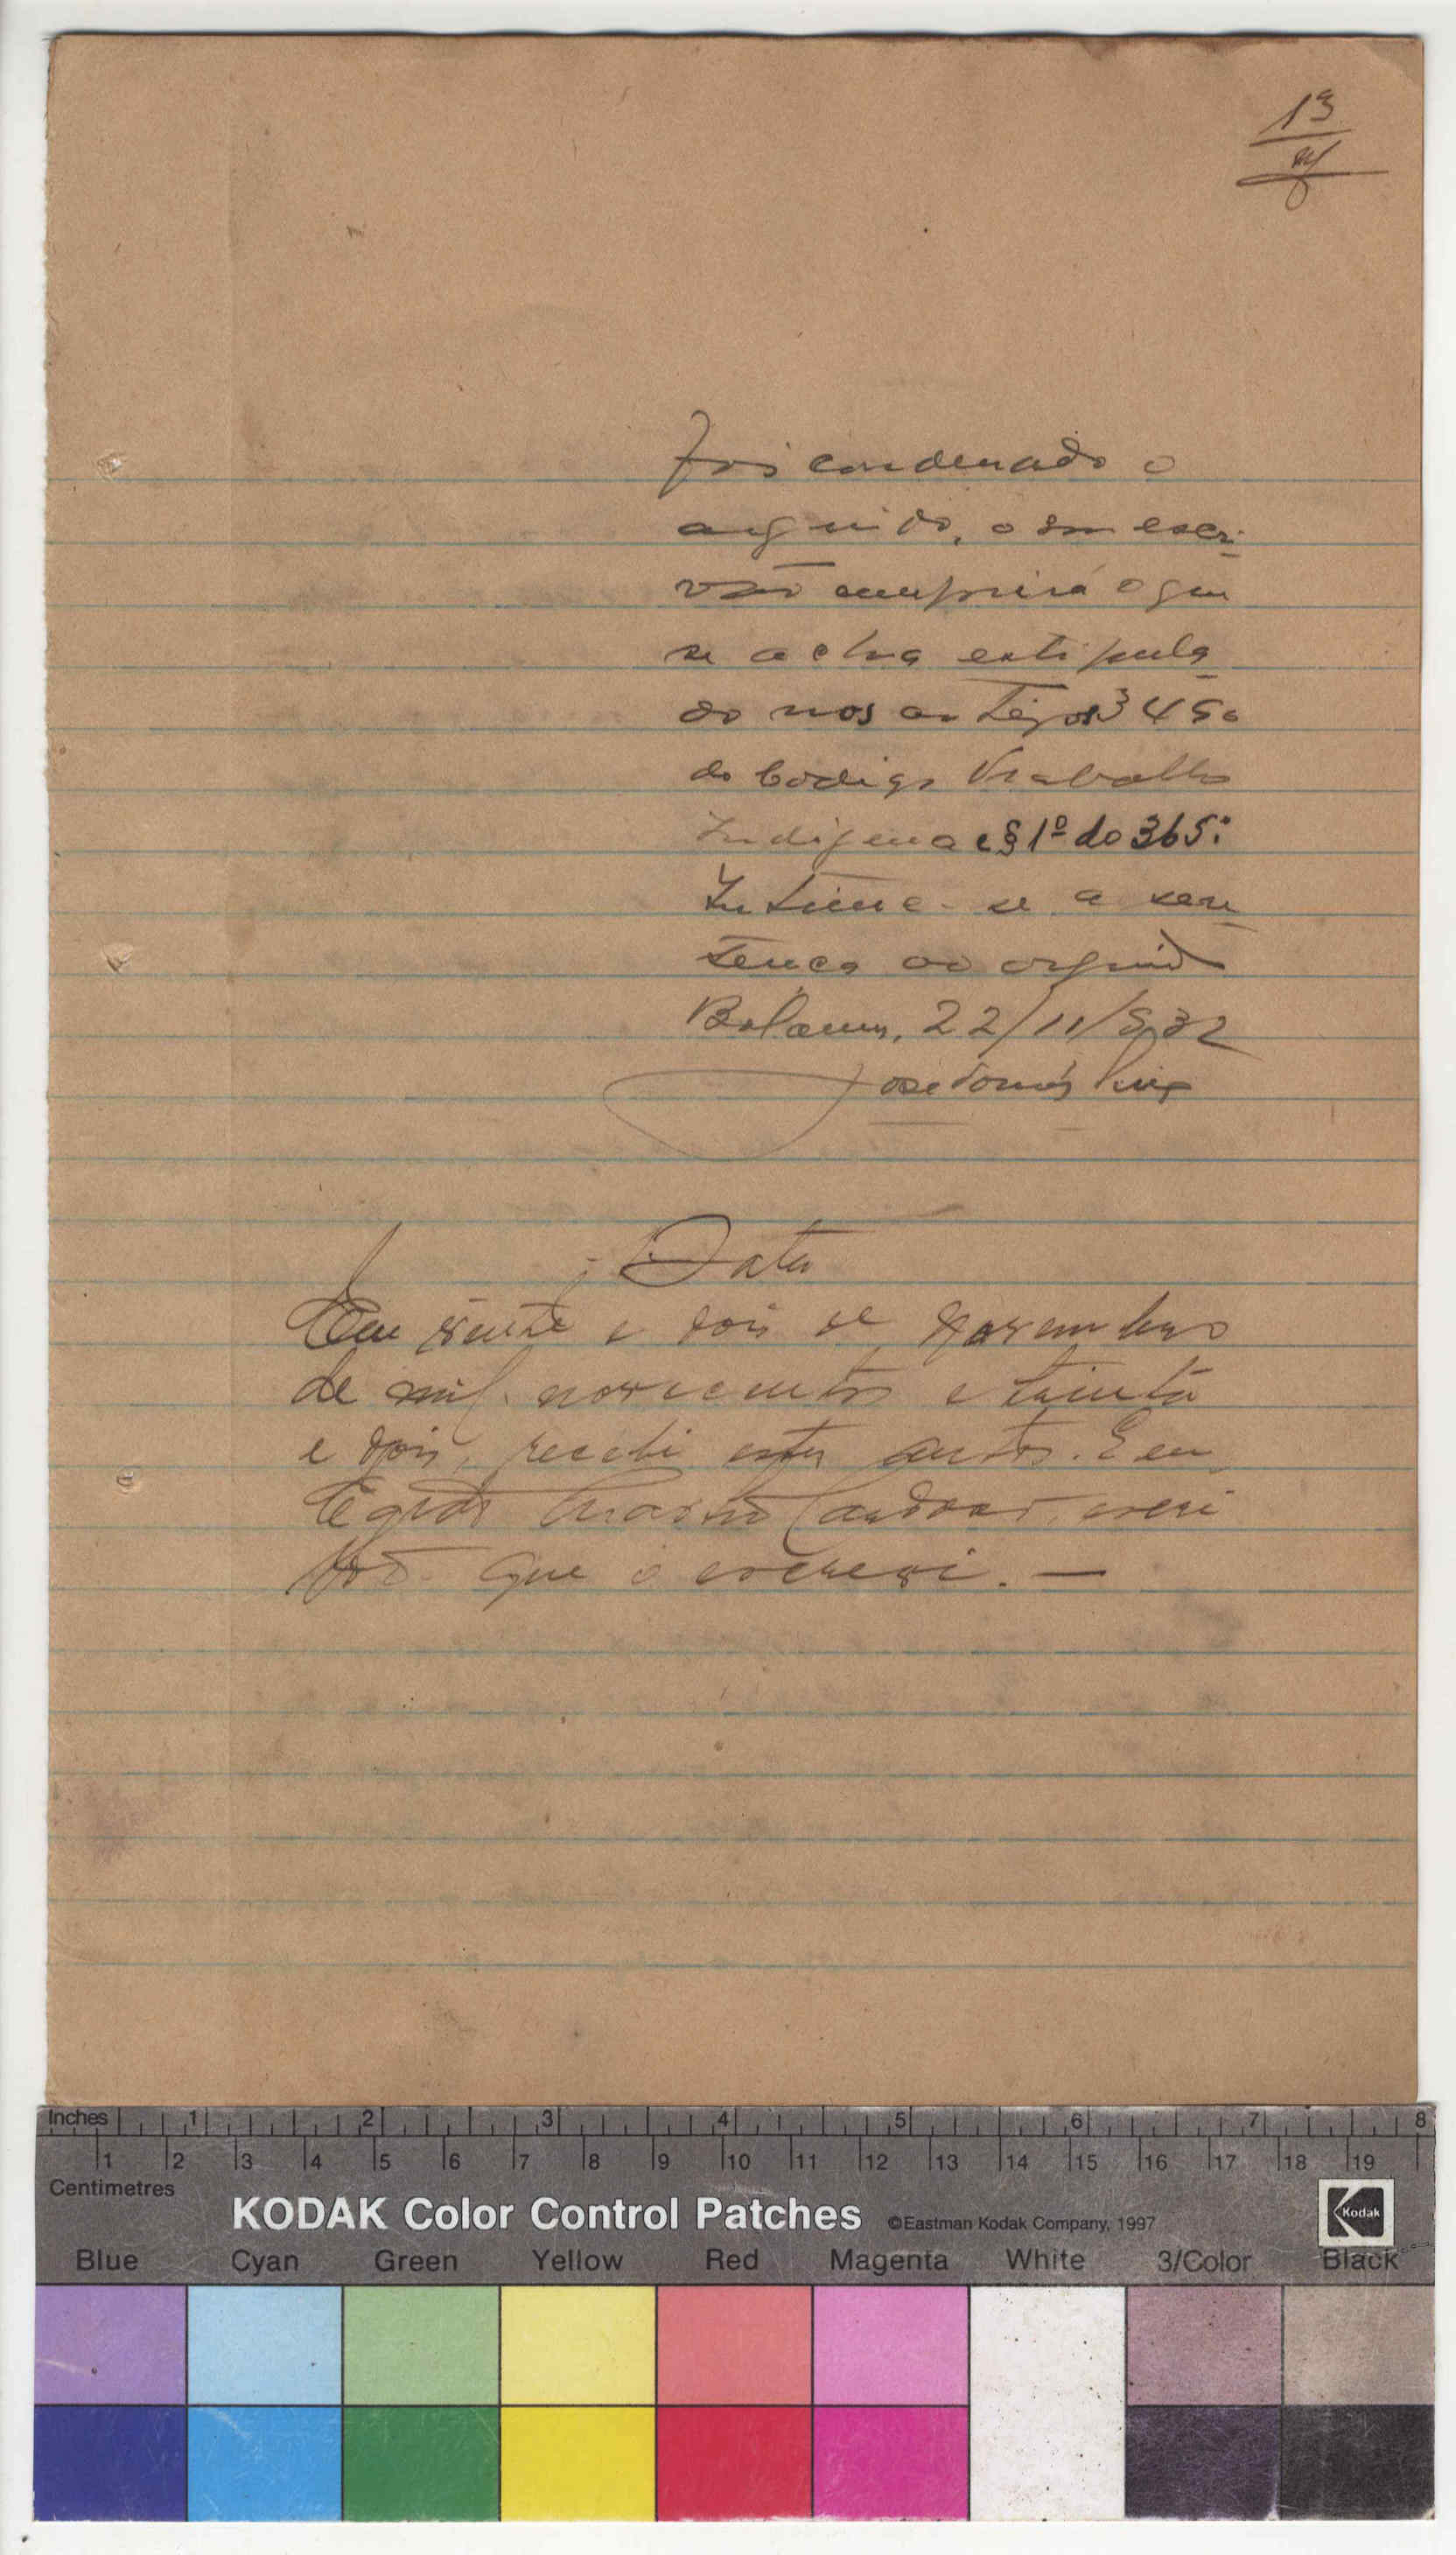 13
foi condenado o
arguido, o snr escri-
vão cumprirá o que
se acha estipula-
do nos artigos 345o
do Codigo Trabalho
Indigena e § 1º do 365º
Intime-se a sen-
tença ao arguido
Bolama, 22/11/932
José Tomás
Data
Em vinte e dois de Novembro
de mil novecentos e trinta
e dois, recebi estes autos. E eu
escri
vão que o escrevi. —
Inches 1 2 3 4 5 6 7 8
1 2 3 4 5 6 7 8 9 10 11 12 13 14 15 16 17 18 19
Centimetres
KODAK Color Control Patches ©Eastman Kodak Company, 1997 Kodak
Blue Cyan Green Yellow Red Magenta White 3/Color Black